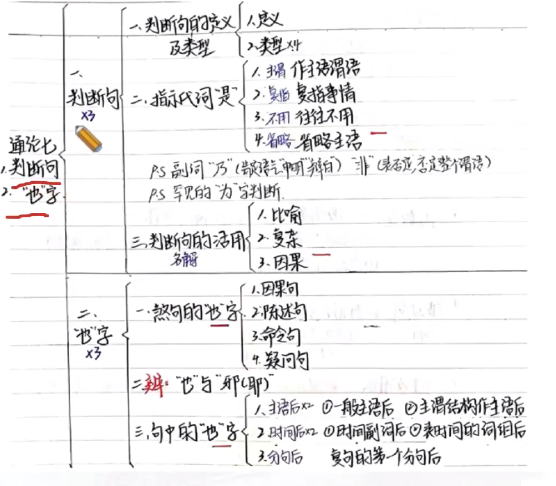 通论七
1.判断句
2."也"字
一、判断句
×3
一、判断句的定义及类型
1.定义
2.类型×4
二、指示代词"是"
1.主谓 作主语谓语
2.复指 复指事情
3.不用 往往不用
4.省略 省略主语
P.S 副词"乃" "非"
P.S 罕见的"为"字判断.
三、判断句的活用
名解
1.比喻
2.复杂
3.因果
二、"也"字
×3
一、煞句的"也"字
1.因果句
2.陈述句
3.命令句
4.疑问句
二、辨:"也"与"邪(耶)"
三、句中的"也"字
1.主语后×2 ①一般主语后 ②主谓结构作主语后
2.时间后×2 ①时间副词后 ②表时间的词组后
3.分句后 复句的第一个分句后